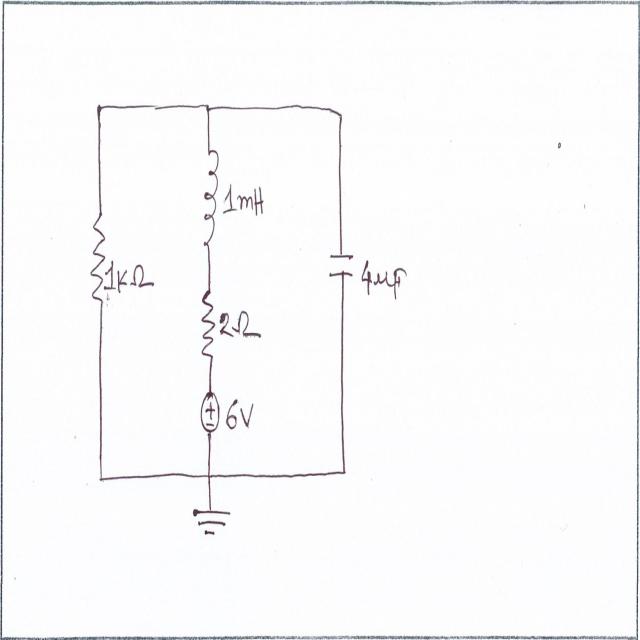 1mH
1KΩ
4μF
2Ω
6V